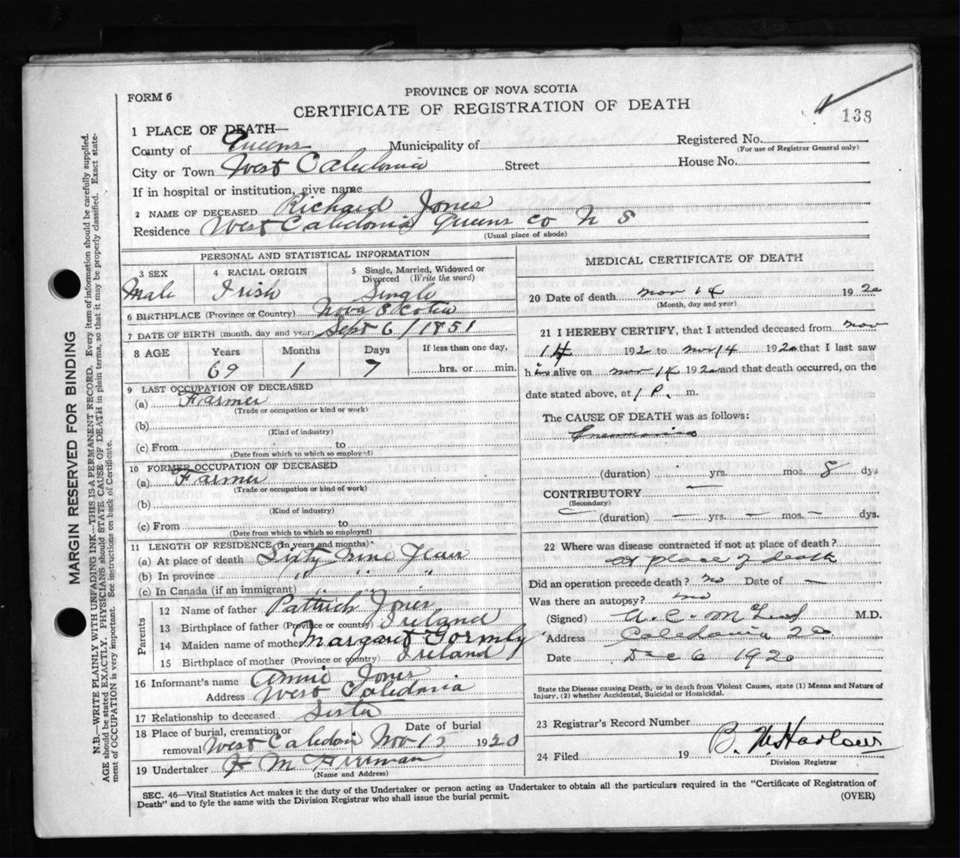 FORM 6
PROVINCE OF NOVA SCOTIA
CERTIFICATE OF REGISTRATION OF DEATH
138
1 PLACE OF DEATH—
County of Queens Municipality of Registered No.
(For use of Registrar General only)
City or Town West Caledonia Street House No.
If in hospital or institution, give name
2 NAME OF DECEASED Richard Jones
Residence West Caledonia Queens Co N S
(Usual place of abode)
PERSONAL AND STATISTICAL INFORMATION
3 SEX 4 RACIAL ORIGIN 5 Single, Married, Widowed or Divorced (Write the word)
Male Irish Single
6 BIRTHPLACE (Province or Country) Nova Scotia
7 DATE OF BIRTH (month, day and year) Sept 6/1851
8 AGE Years Months Days If less than one day,
69 1 7 hrs. or min.
9 LAST OCCUPATION OF DECEASED
(a) Farmer
(Trade or occupation or kind or work)
(b)
(Kind of industry)
(c) From to
(Date from which to which so employed)
10 FORMER OCCUPATION OF DECEASED
(a) Farmer
(Trade or occupation or kind of work)
(b)
(Kind of industry)
(c) From to
(Date from which to which so employed)
11 LENGTH OF RESIDENCE (In years and months)
(a) At place of death Sixty Nine Years
(b) In province " " "
(c) In Canada (if an immigrant)
Parents
12 Name of father Patrick Jones
13 Birthplace of father (Province or country) Ireland
14 Maiden name of mother Margaret Gormly
15 Birthplace of mother (Province or country) Ireland
16 Informant's name Annie Jones
Address West Caledonia
17 Relationship to deceased Sister
18 Place of burial, cremation or removal Date of burial
West Caledonia Nov 15 1920
19 Undertaker
(Name and Address)
MEDICAL CERTIFICATE OF DEATH
20 Date of death Nov 14 1920
(Month, day and year)
21 I HEREBY CERTIFY, that I attended deceased from Nov
14 1920 to Nov 14 1920 that I last saw
him alive on Nov 14 1920 and that death occurred, on the
date stated above, at 1 P. m.
The CAUSE OF DEATH was as follows:
Pneumonia
(duration) — yrs. — mos. 8 dys
CONTRIBUTORY —
(Secondary)
(duration) — yrs. — mos. — dys.
22 Where was disease contracted if not at place of death?
at place of death
Did an operation precede death? no Date of —
Was there an autopsy? no
(Signed) A. C. M.D.
Address Caledonia
Date Dec 6 1920
State the Disease causing Death, or in death from Violent Causes, state (1) Means and Nature of
Injury, (2) whether Accidental, Suicidal or Homicidal.
23 Registrar's Record Number
24 Filed 19 Harlow
Division Registrar
SEC. 46—Vital Statistics Act makes it the duty of the Undertaker or person acting as Undertaker to obtain all the particulars required in the "Certificate of Registration of
Death" and to fyle the same with the Division Registrar who shall issue the burial permit.
(OVER)
MARGIN RESERVED FOR BINDING
N.B.—WRITE PLAINLY WITH UNFADING INK—THIS IS A PERMANENT RECORD. Every item of information should be carefully supplied.
AGE should be stated EXACTLY. PHYSICIANS should STATE CAUSE OF DEATH in plain terms, so that it may be properly classified. Exact state-
ment of OCCUPATION is very important. See instructions on back of Certificate.